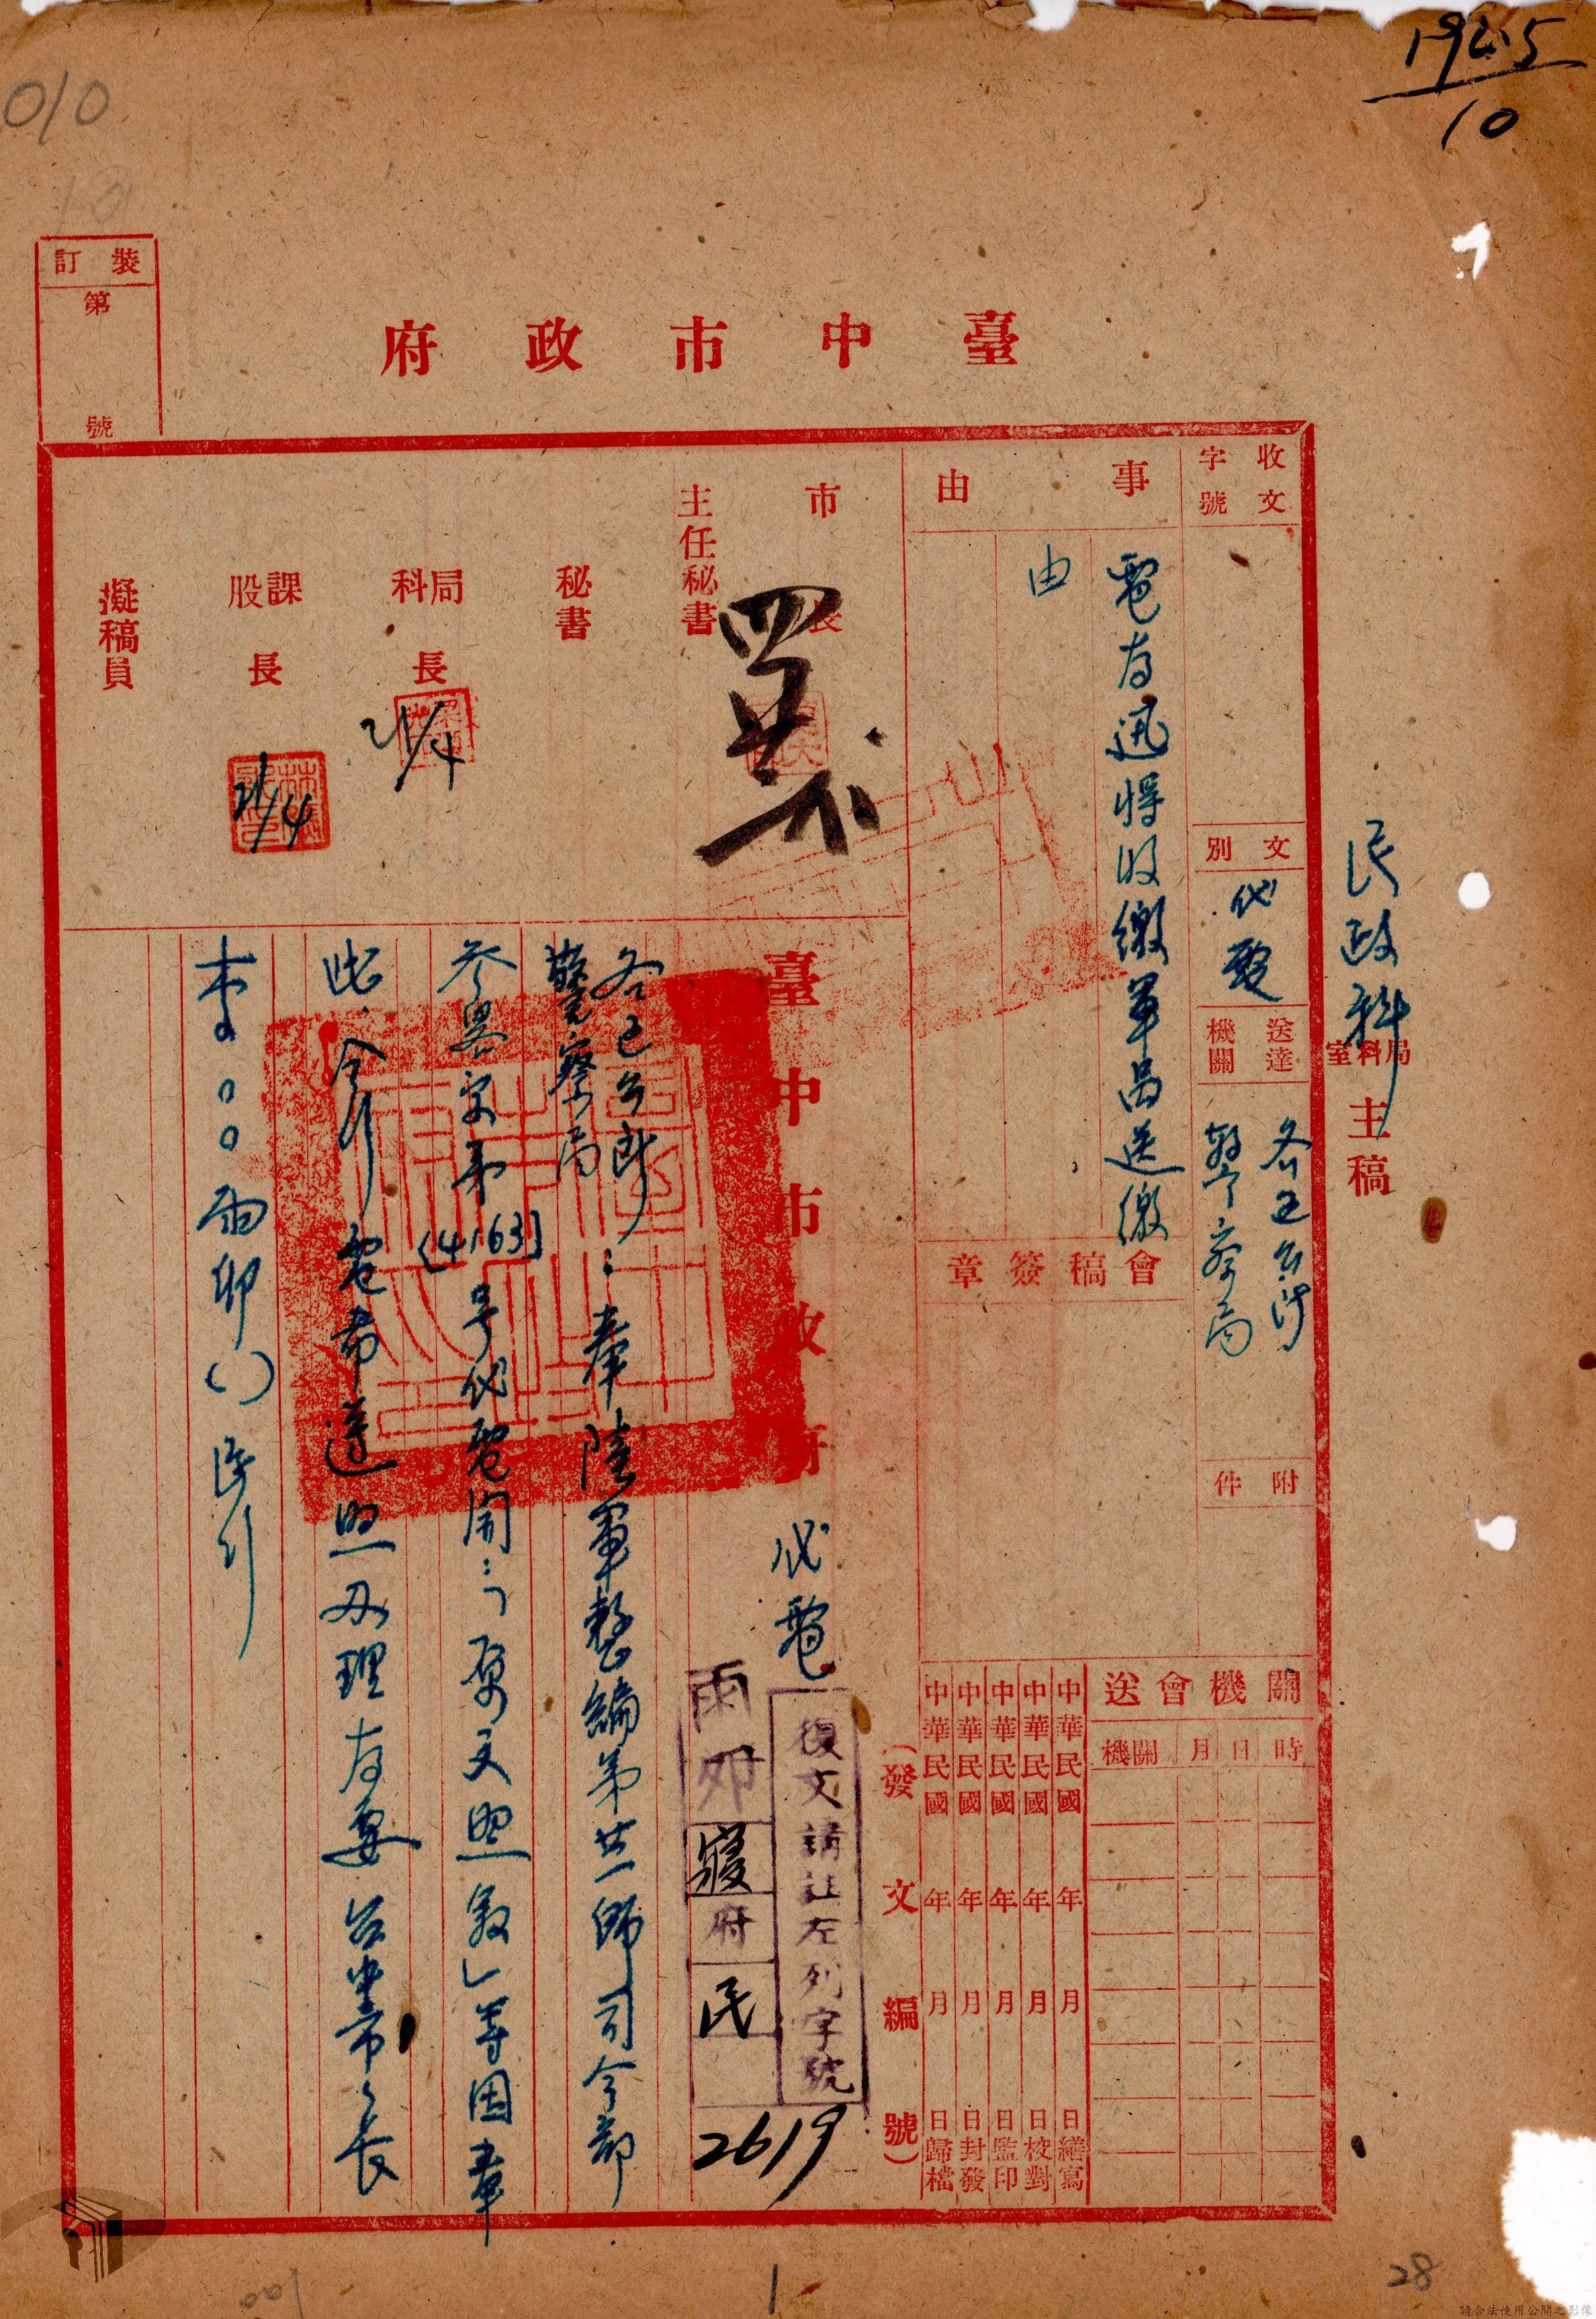 1945
10
010
裝訂
第
號
臺中市政府
民政科
局科室
主稿
收文
字號
文別
代電
送達
機關
各區公所
警察局
附件
事由
電為迅將收繳軍品送繳
由
會稿簽章
關機會送
時
日
月
機關
中華民國 年 月 日繕寫
中華民國 年 月 日校對
中華民國 年 月 日監印
中華民國 年 月 日封發
中華民國 年 月 日歸檔
(發文編號)
市長
主任秘書
秘書
局科長
21/4
課股長
21/4
擬稿員
臺中市政府
代電
復文請註左列字號
雨卯
寢
府
民
2619
各區公所
警察局
：奉陸軍整編第廿一師司令部
參畧字第(4163)号代電開：「原文照敘」等因奉
此，合行電希遵照办理為要 台中市市長
李○○雨卯( )民引
1
28
001
請合法使用公開之影像